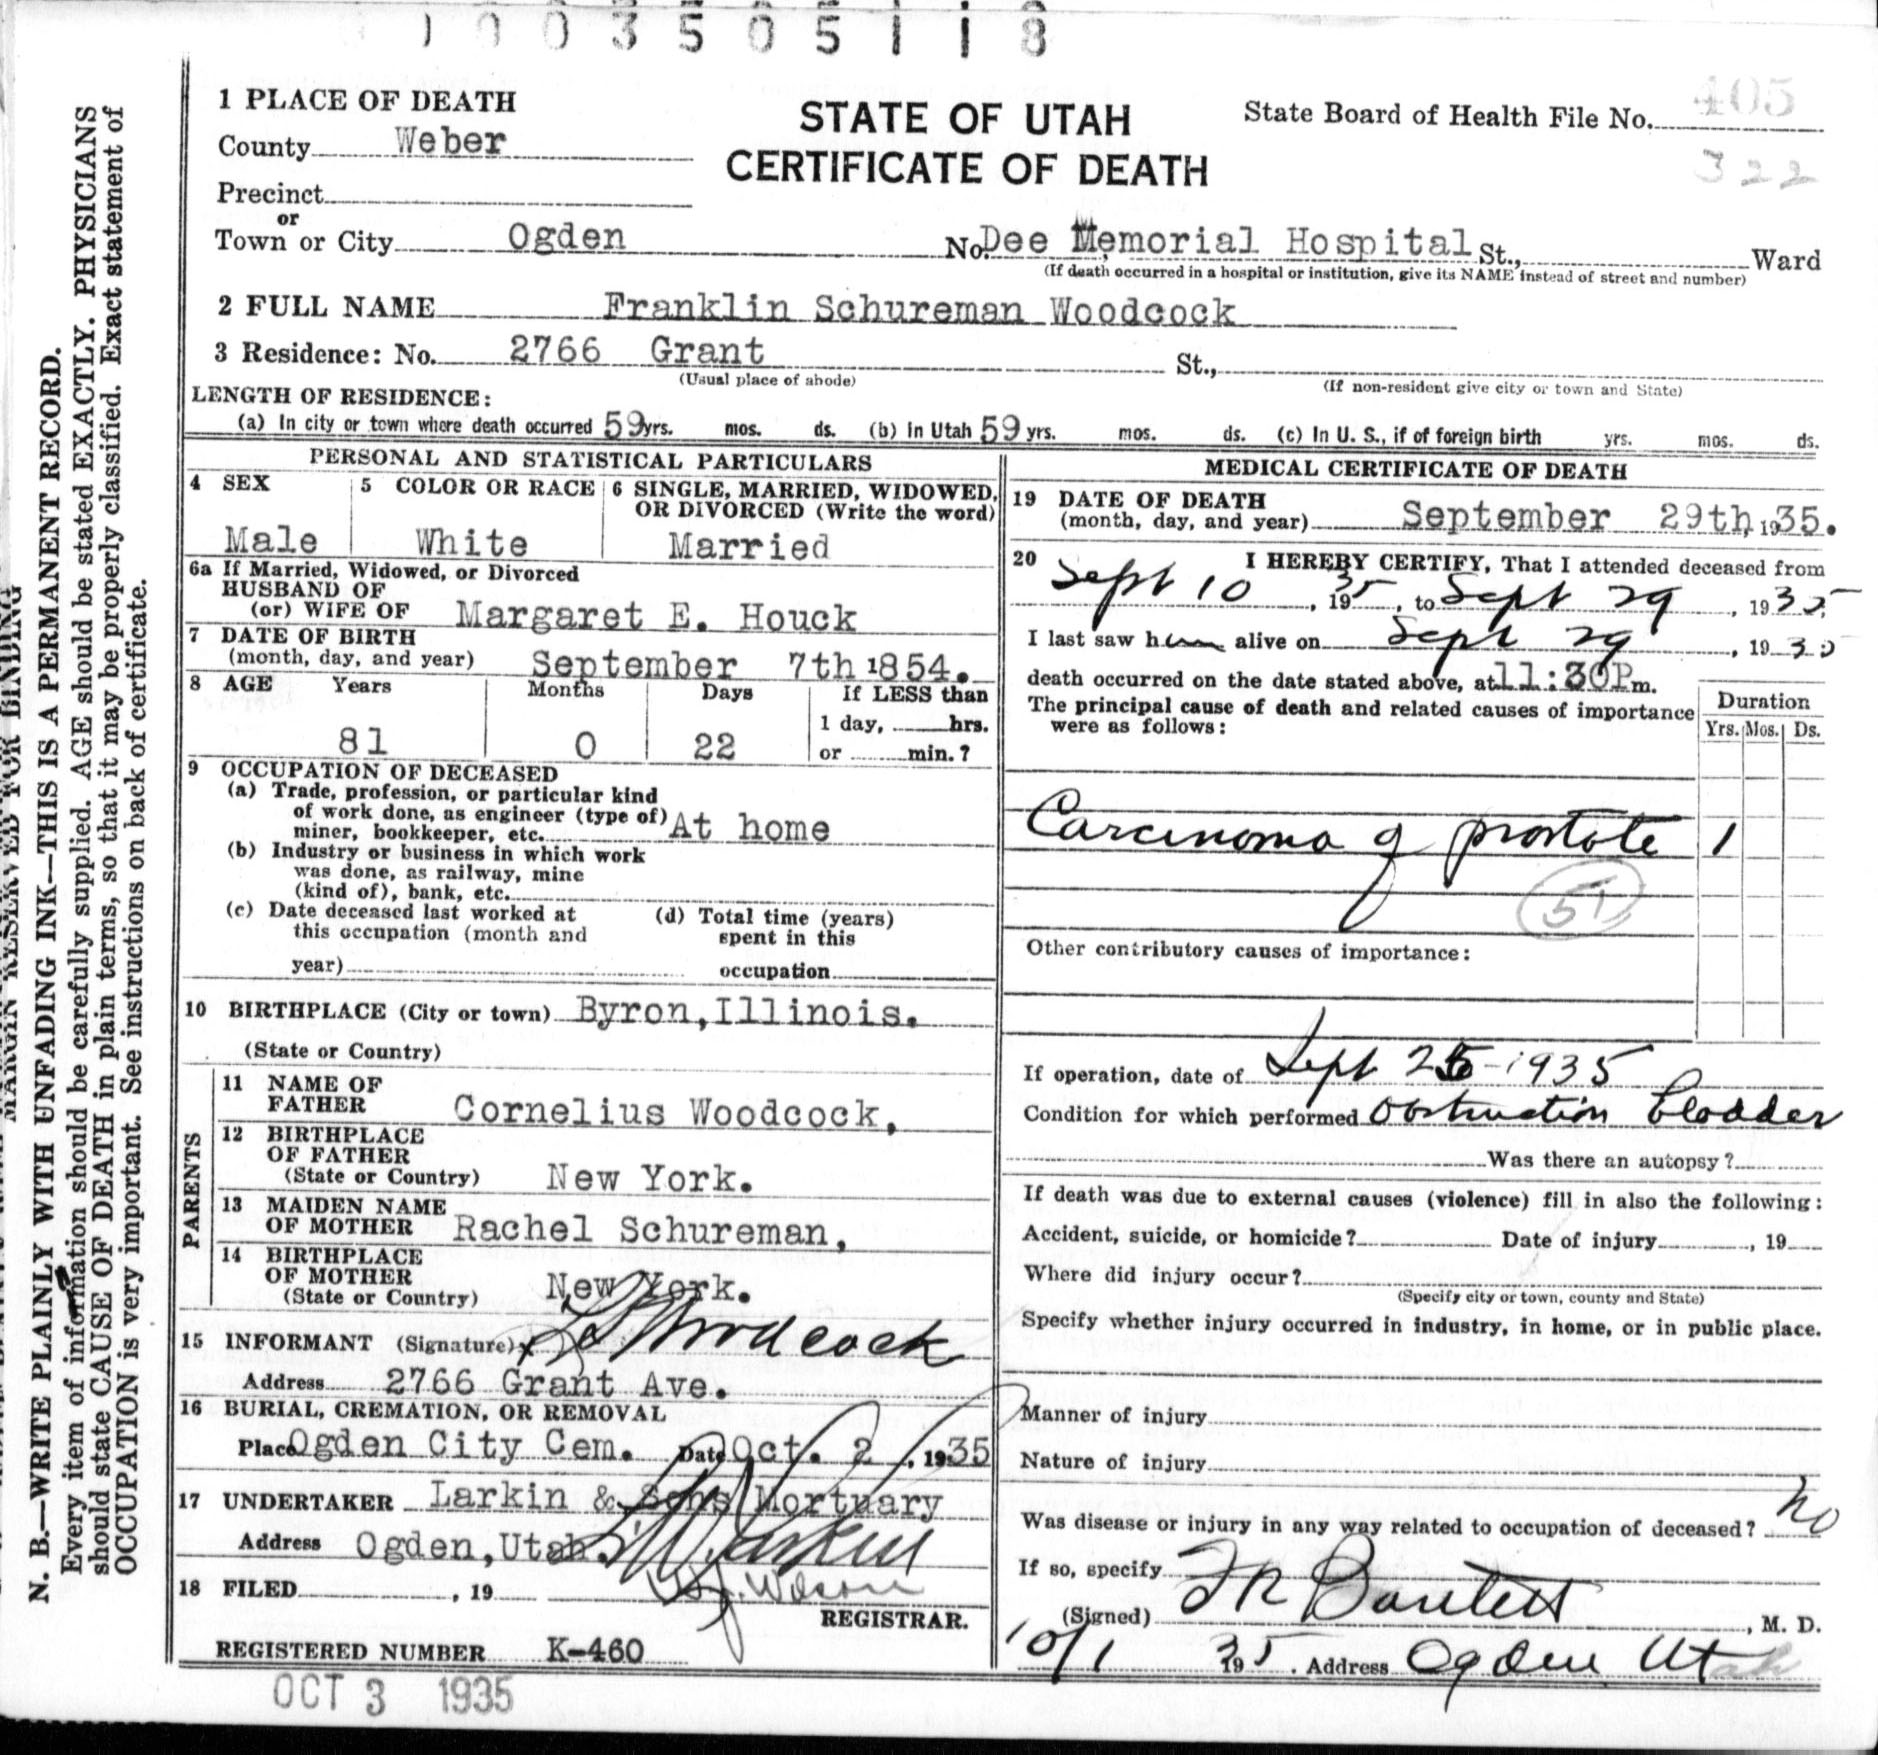 1003505118
1 PLACE OF DEATH
STATE OF UTAH
CERTIFICATE OF DEATH
State Board of Health File No. 405
322
County Weber
Precinct
or
Town or City Ogden No. Dee Memorial Hospital St., Ward
(If death occurred in a hospital or institution, give its NAME instead of street and number)
2 FULL NAME Franklin Schureman Woodcock
3 Residence: No. 2766 Grant St.,
(Usual place of abode) (If non-resident give city or town and State)
LENGTH OF RESIDENCE:
(a) In city or town where death occurred 59 yrs. mos. ds. (b) In Utah 59 yrs. mos. ds. (c) In U. S., if of foreign birth yrs. mos. ds.
PERSONAL AND STATISTICAL PARTICULARS
4 SEX
Male
5 COLOR OR RACE
White
6 SINGLE, MARRIED, WIDOWED,
OR DIVORCED (Write the word)
Married
6a If Married, Widowed, or Divorced
HUSBAND OF
(or) WIFE OF Margaret E. Houck
7 DATE OF BIRTH
(month, day, and year) September 7th 1854.
8 AGE Years Months Days If LESS than
1 day, hrs.
81 0 22 or min.?
9 OCCUPATION OF DECEASED
(a) Trade, profession, or particular kind
of work done, as engineer (type of)
miner, bookkeeper, etc. At home
(b) Industry or business in which work
was done, as railway, mine
(kind of), bank, etc.
(c) Date deceased last worked at
this occupation (month and
year)
(d) Total time (years)
spent in this
occupation
10 BIRTHPLACE (City or town) Byron, Illinois.
(State or Country)
PARENTS
11 NAME OF
FATHER Cornelius Woodcock,
12 BIRTHPLACE
OF FATHER
(State or Country) New York.
13 MAIDEN NAME
OF MOTHER Rachel Schureman,
14 BIRTHPLACE
OF MOTHER
(State or Country) New York.
15 INFORMANT (Signature) x Woodcock
Address 2766 Grant Ave.
16 BURIAL, CREMATION, OR REMOVAL
Place Ogden City Cem. Date Oct. 2, 1935
17 UNDERTAKER Larkin & Sons Mortuary
Address Ogden, Utah. Larkin
18 FILED , 19 Wilson
REGISTRAR.
REGISTERED NUMBER K-460
OCT 3 1935
MEDICAL CERTIFICATE OF DEATH
19 DATE OF DEATH
(month, day, and year) September 29th, 1935.
20 I HEREBY CERTIFY, That I attended deceased from
Sept 10, 1935, to Sept 29, 1935;
I last saw him alive on Sept 29, 1935
death occurred on the date stated above, at 11:30P m.
The principal cause of death and related causes of importance
were as follows:
Duration
Yrs. Mos. Ds.
Carcinoma of prostate 1
51
Other contributory causes of importance:
If operation, date of Sept 25-1935
Condition for which performed Obstruction bladder
Was there an autopsy?
If death was due to external causes (violence) fill in also the following:
Accident, suicide, or homicide? Date of injury , 19
Where did injury occur?
(Specify city or town, county and State)
Specify whether injury occurred in industry, in home, or in public place.
Manner of injury
Nature of injury
Was disease or injury in any way related to occupation of deceased? No
If so, specify
(Signed) Bartlett, M. D.
10/1 1935. Address Ogden Utah
MARGIN RESERVED FOR BINDING
N. B.—WRITE PLAINLY WITH UNFADING INK—THIS IS A PERMANENT RECORD.
Every item of information should be carefully supplied. AGE should be stated EXACTLY. PHYSICIANS
should state CAUSE OF DEATH in plain terms, so that it may be properly classified. Exact statement of
OCCUPATION is very important. See instructions on back of certificate.